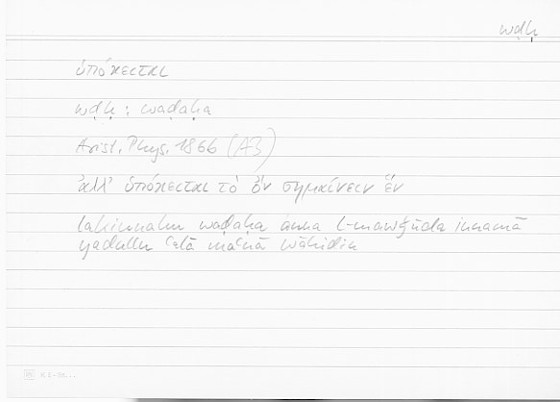 wḍḥ
ὑπόκειται
wḍḥ : waḍaḥa
Arist. Phys. 186b (A3)
ἀλλ' ὑπόκειται τὸ ὂν σημαίνειν ἕν
lākinnahu waḍaḥa anna l-mawǧūda innamā
yadullu ʿalā maʿnā wāḥidin